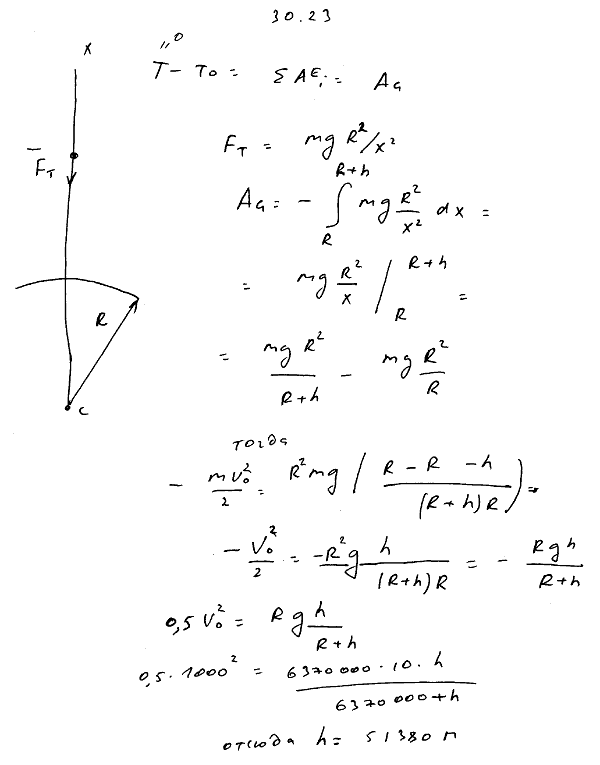 30.23
x
"0
T - T₀ = Σ Aᴱᵢ = A_G
F_T = mg R²/x²
F̅_T
A_G = - ∫_R^{R+h} mg R²/x² dx =
= mg R²/x |_R^{R+h} =
R
= mg R²/(R+h) - mg R²/R
C
тогда
- mv₀²/2 = R²mg ((R - R - h)/((R+h)R)) =
- V₀²/2 = -R²g h/((R+h)R) = - Rgh/(R+h)
0,5 V₀² = R g h/(R+h)
0,5 · 1000² = 6370000 · 10 · h/(6370000+h)
отсюда h = 51380 м